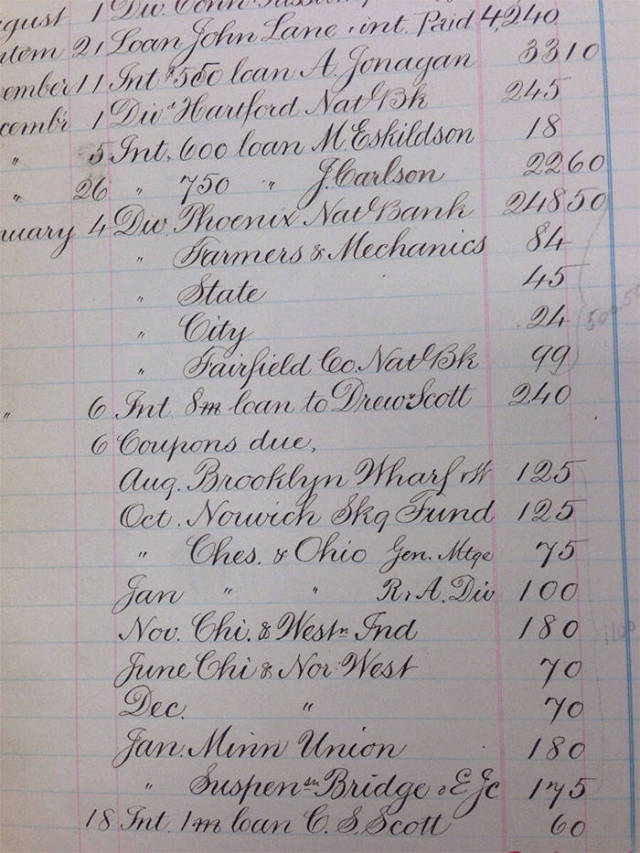 gust 1 Div. Conn.
tem 21 Loan John Lane, int. Paid 4,240
ember 11 Int $550 loan A. Jonagan 33 10
cembr 1 Divd Hartford Natl Bk 245
" 5 Int. 600 loan M. Eskildson 18
" 26 " 750 " J. Carlson 22 60
nuary 4 Div. Phoenix Natl Bank 248 50
" Farmers & Mechanics 84
" State 45
" City 24
" Fairfield Co. Natl Bk 99
" 6 Int 8m loan to Drew & Scott 240
6 Coupons due,
Aug. Brooklyn Wharf & W 125
Oct. Norwich Skg Fund 125
" Ches. & Ohio Gen. Mtge 75
Jan " " R. & A. Div 100
Nov. Chi. & Westn Ind 180
June Chi & Nor West 70
Dec. " 70
Jan. Minn Union 180
" Suspensn Bridge & E Jc 175
18 Int. 1m loan C. S. Scott 60